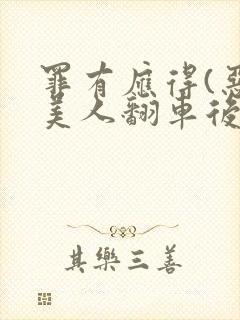 罪有應得(惡
美人翻車後
其樂三善